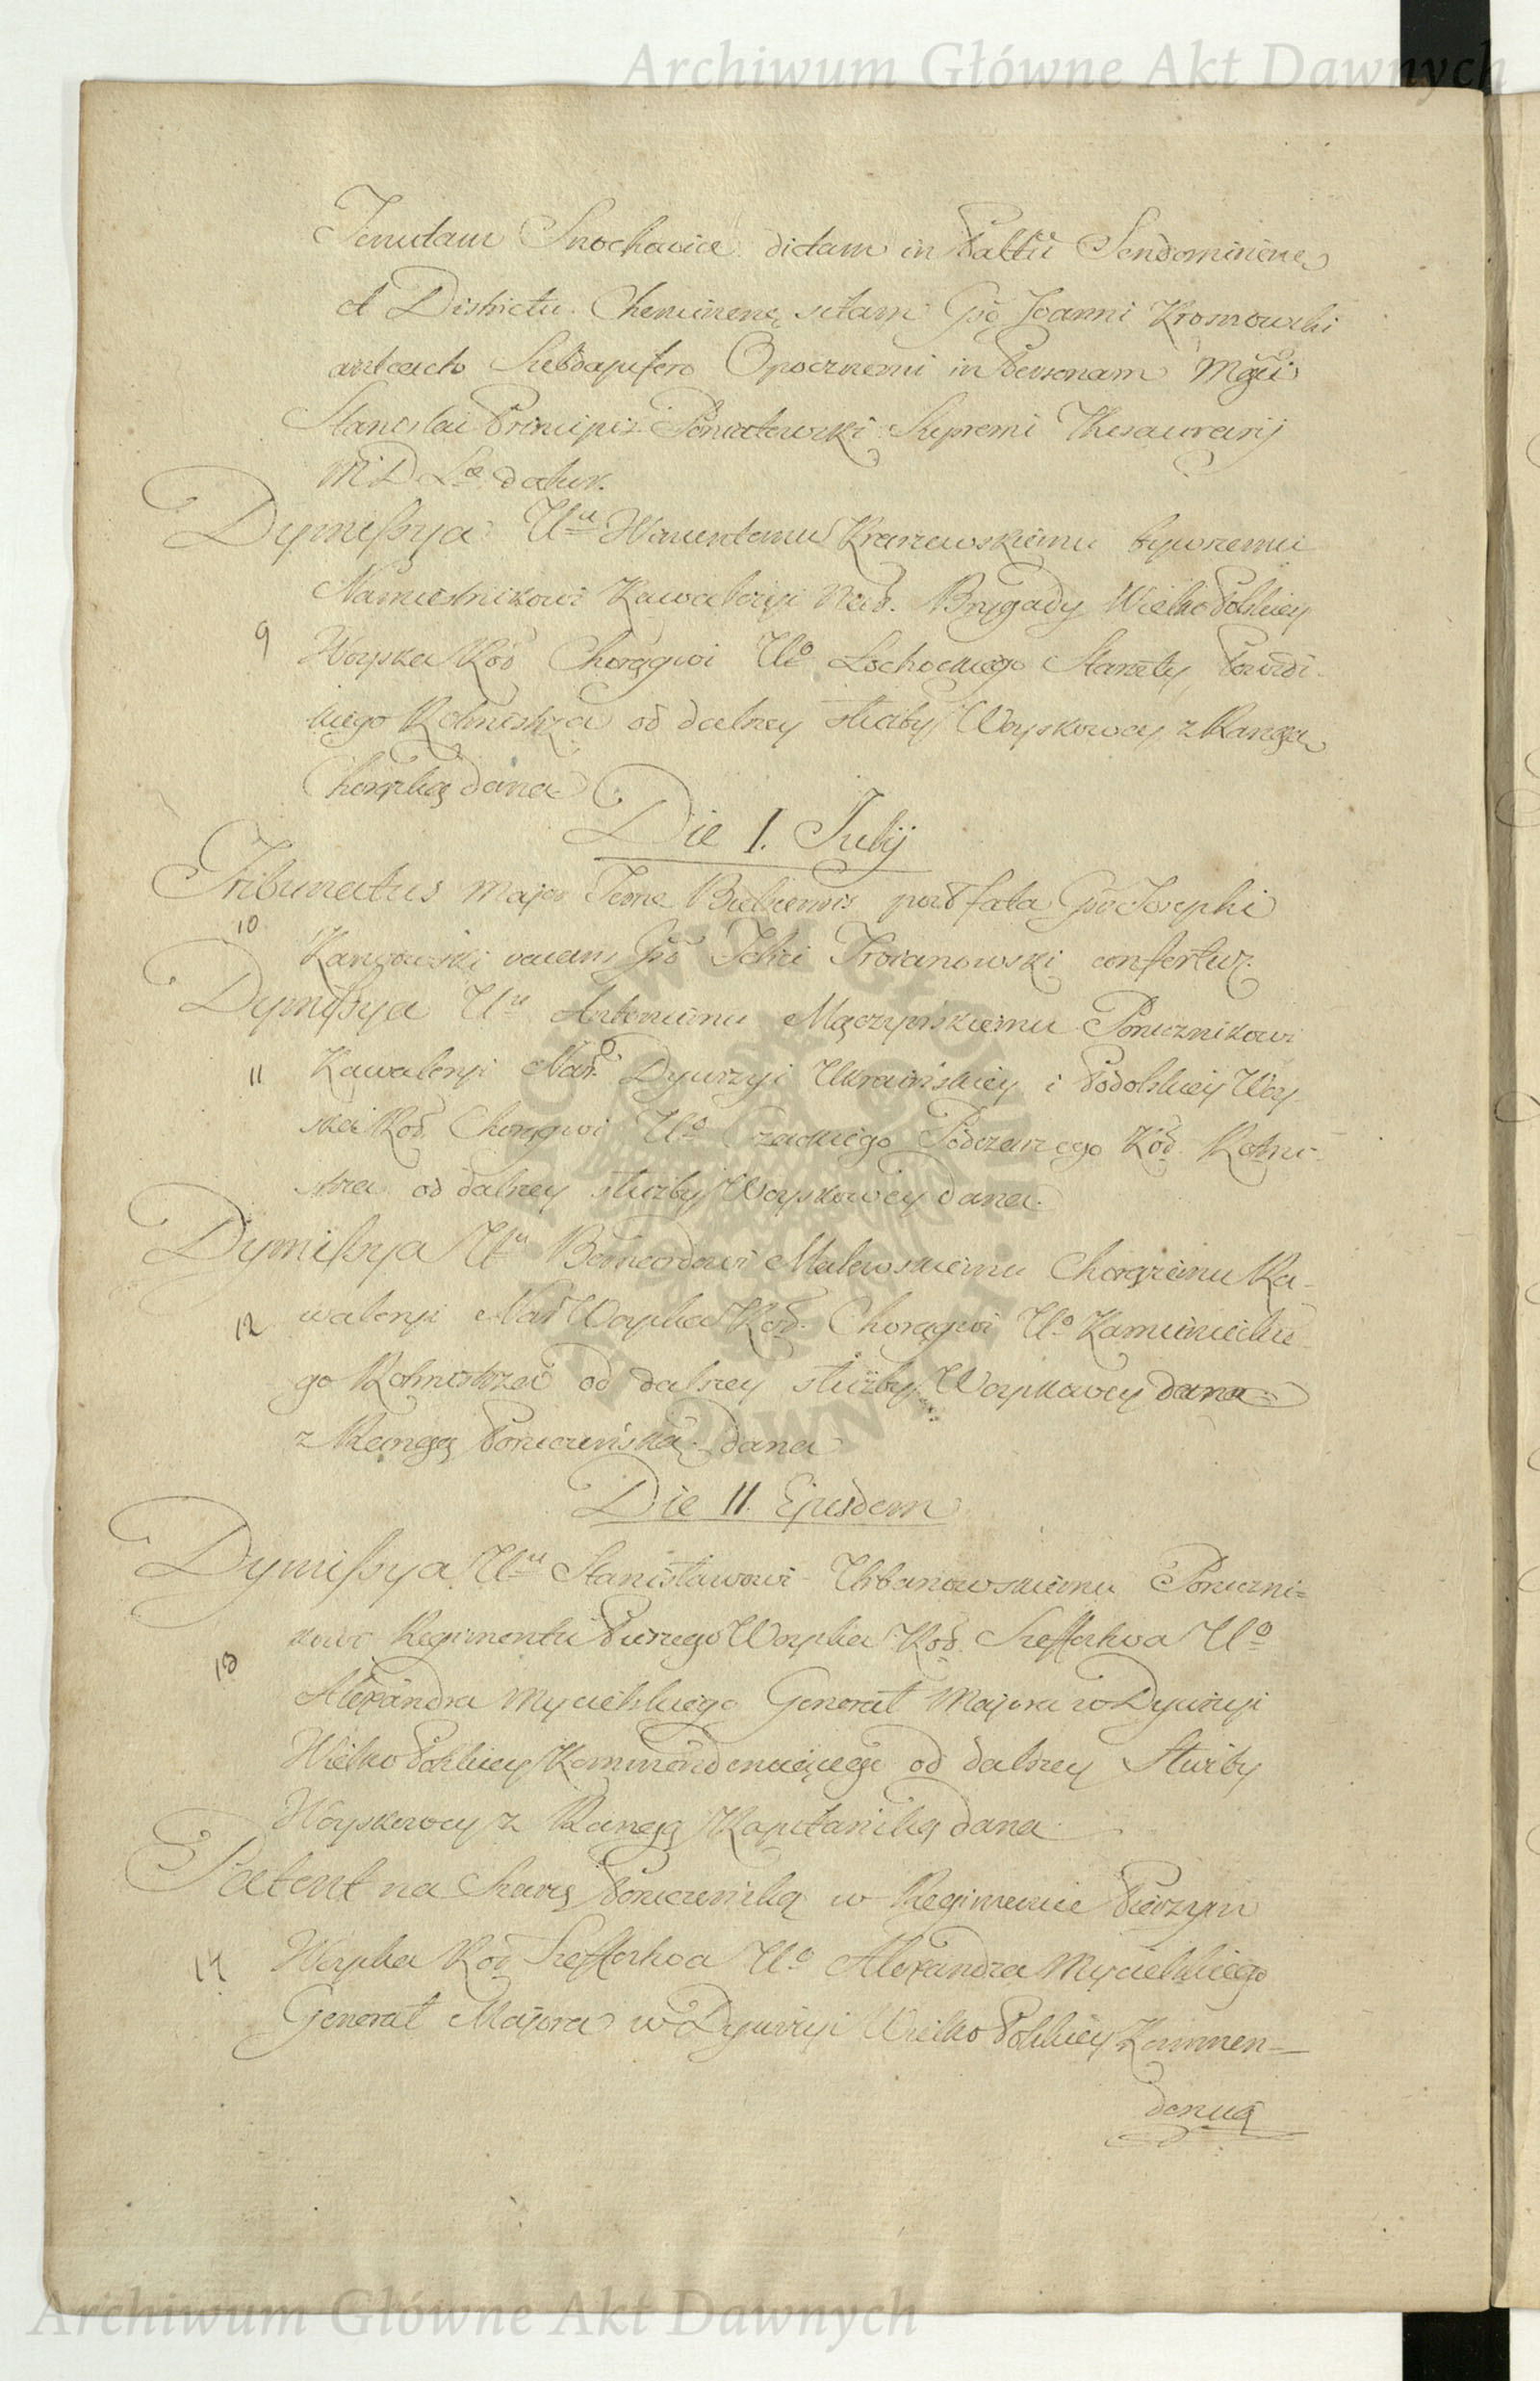 Archiwum Główne Akt Dawnych
Tenutam Snochowice dictam in Pałtu Sendomirien
et Districtu Chencinen sitam Gso Joanni Krosnowski
anteacto Subdapifero Opocznensi in Personam Mgci
Stanislai Principis Poniatowski Supremi Thesaurarij
M. D. L. datur.
Dymissya Uu Wawrzencowi Kraszewskiemu bywszemu
Namiestnikowi Kawaleryi Nar. Brygady Wielko Polskiey
9 Woyska Kor. Chorągwi Uo Łochockiego Starosty
kiego Rotmistrza od dalszey służby Woyskowey z Rangą
Chorążską dana
Die 1. Julij
Tribunatus major Terrae post fata Gsi Josephi
10
vacans Gso Felici Trojanowski confertur.
Dymissya Uu Antoniemu Mączyńskiemu Porucznikowi
11 Kawaleryi Nar. Dywizyi Ukraińskiey i Podolskiey Woy
ska Kor. Chorągwi Uo Czackiego Podczaszego Kor. Rotmi-
strza od dalszey służby Woyskowey dana.
Dymissya Uu Bernardowi Malewskiemu Chorążemu Ka-
12 waleryi Nar Woyska Kor. Chorągwi Uo Kamienieckie-
go Rotmistrza od dalszey służby Woyskowey dana
z Rangą Poruczniską dana
Die 11. Ejusdem
Dymissya Uu Stanisławowi Urbanowskiemu Poruczni=
kowi Regimentu Pieszego Woyska Kor. Szeffostwa Uo
13
Alexandra Mycielskiego Generał Majora w Dywizyi
Wielko Polskiey Kommenderuiącego od dalszey Służby
Woyskowey z Rangą Kapitańską dana
Patent na Szarżę Poruczniką w Regimencie Pieszym
14 Woyska Kor Szeffostwa Uo Alexandra Mycielskiego
Generał Majora w Dywizyi Wielko Polskiey Kommen=
deruią
Archiwum Główne Akt Dawnych